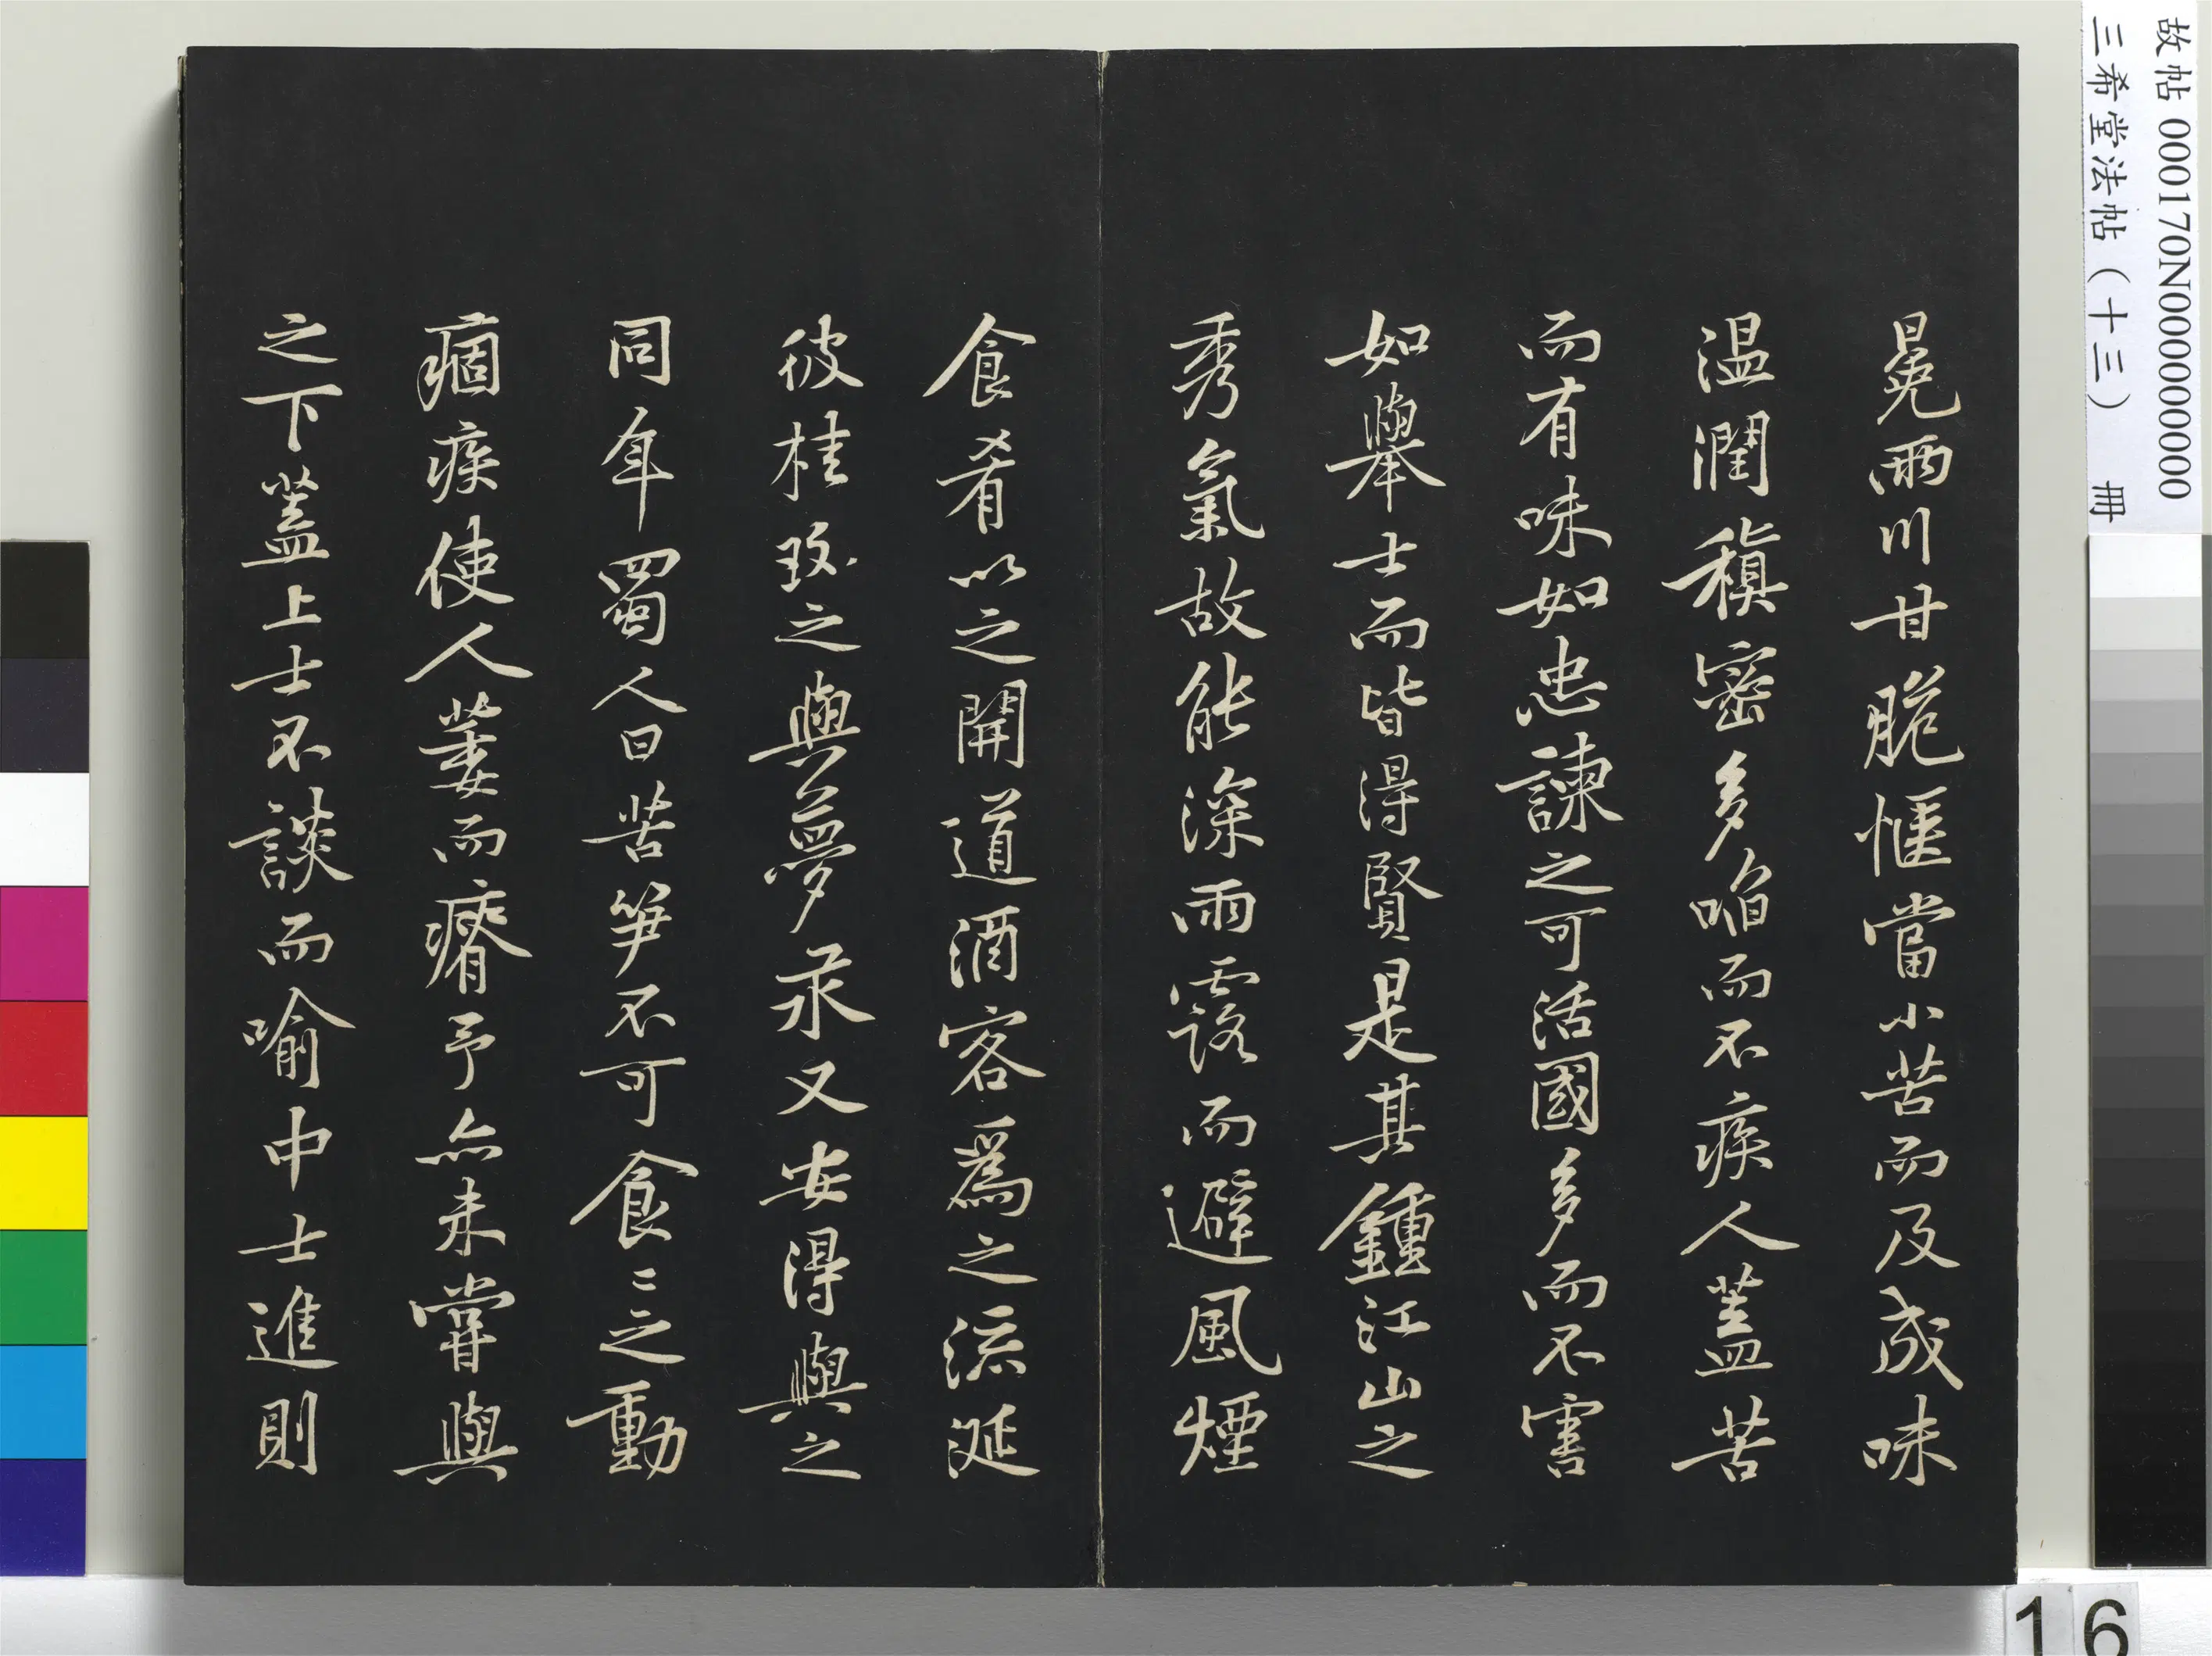 故帖 000170N000000000
三希堂法帖（十三） 冊
冕兩川甘脆愜當小苦而及成味
温潤稹密多啗而不疾人蓋苦
而有味如忠諫之可活國多而不害
如舉士而皆得賢是其鍾江山之
秀氣故能深雨露而避風煙
食肴以之開道酒客為之流涎
彼桂玫之與夢汞又安得與之
同年蜀人曰苦笋不可食〻之動
痼疾使人萎而瘠予亦未嘗與
之下蓋上士不談而喻中士進則
16